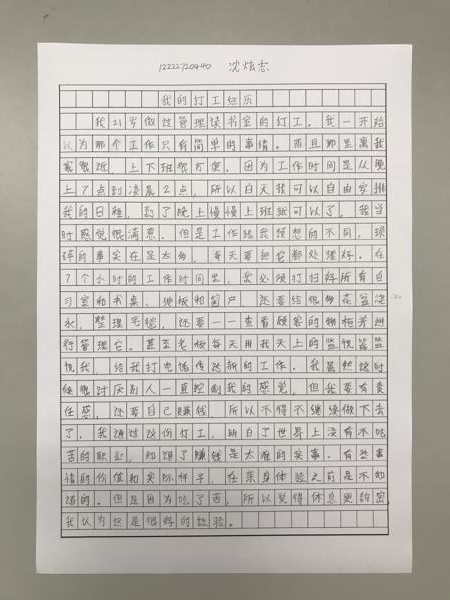 1222720440 沈炫志
我的打工经历
我21岁做过管理读书室的打工。我一开始
认为那个工作只有简单的事情。而且那里离我
家很近，上下班很方便。因为工作时间是从晚
上7点到凌晨2点，所以白天我可以自由安排
我的日程，到了晚上慢慢上班就可以了，我当
时感觉很满意。但是工作给我预想的不同，琐
碎的事实在是太多，每天要把它都处理好。在
7个小时的工作时间里，我必须打扫好所有自
习室和书桌、地板和窗户，还要给很多花盆浇
水，整理毛毯，还要一一查看顾客的物柜并进
行管理它。甚至老板每天用我头上的监视器监
视我，给我打电话传达新的工作。我虽然这时
候很讨厌别人一直控制我的感觉，但我要有责
任感，还要自己赚钱，所以不得不继续做下去
了。我通过这份打工，明白了世界上没有不吃
苦的职业，知道了赚钱是太难的实事。有些事
情的价值和实际样子，在亲身体验之前是不知
道的。但是因为吃了苦，所以觉得休息更甜蜜
我认为这是很好的经验。